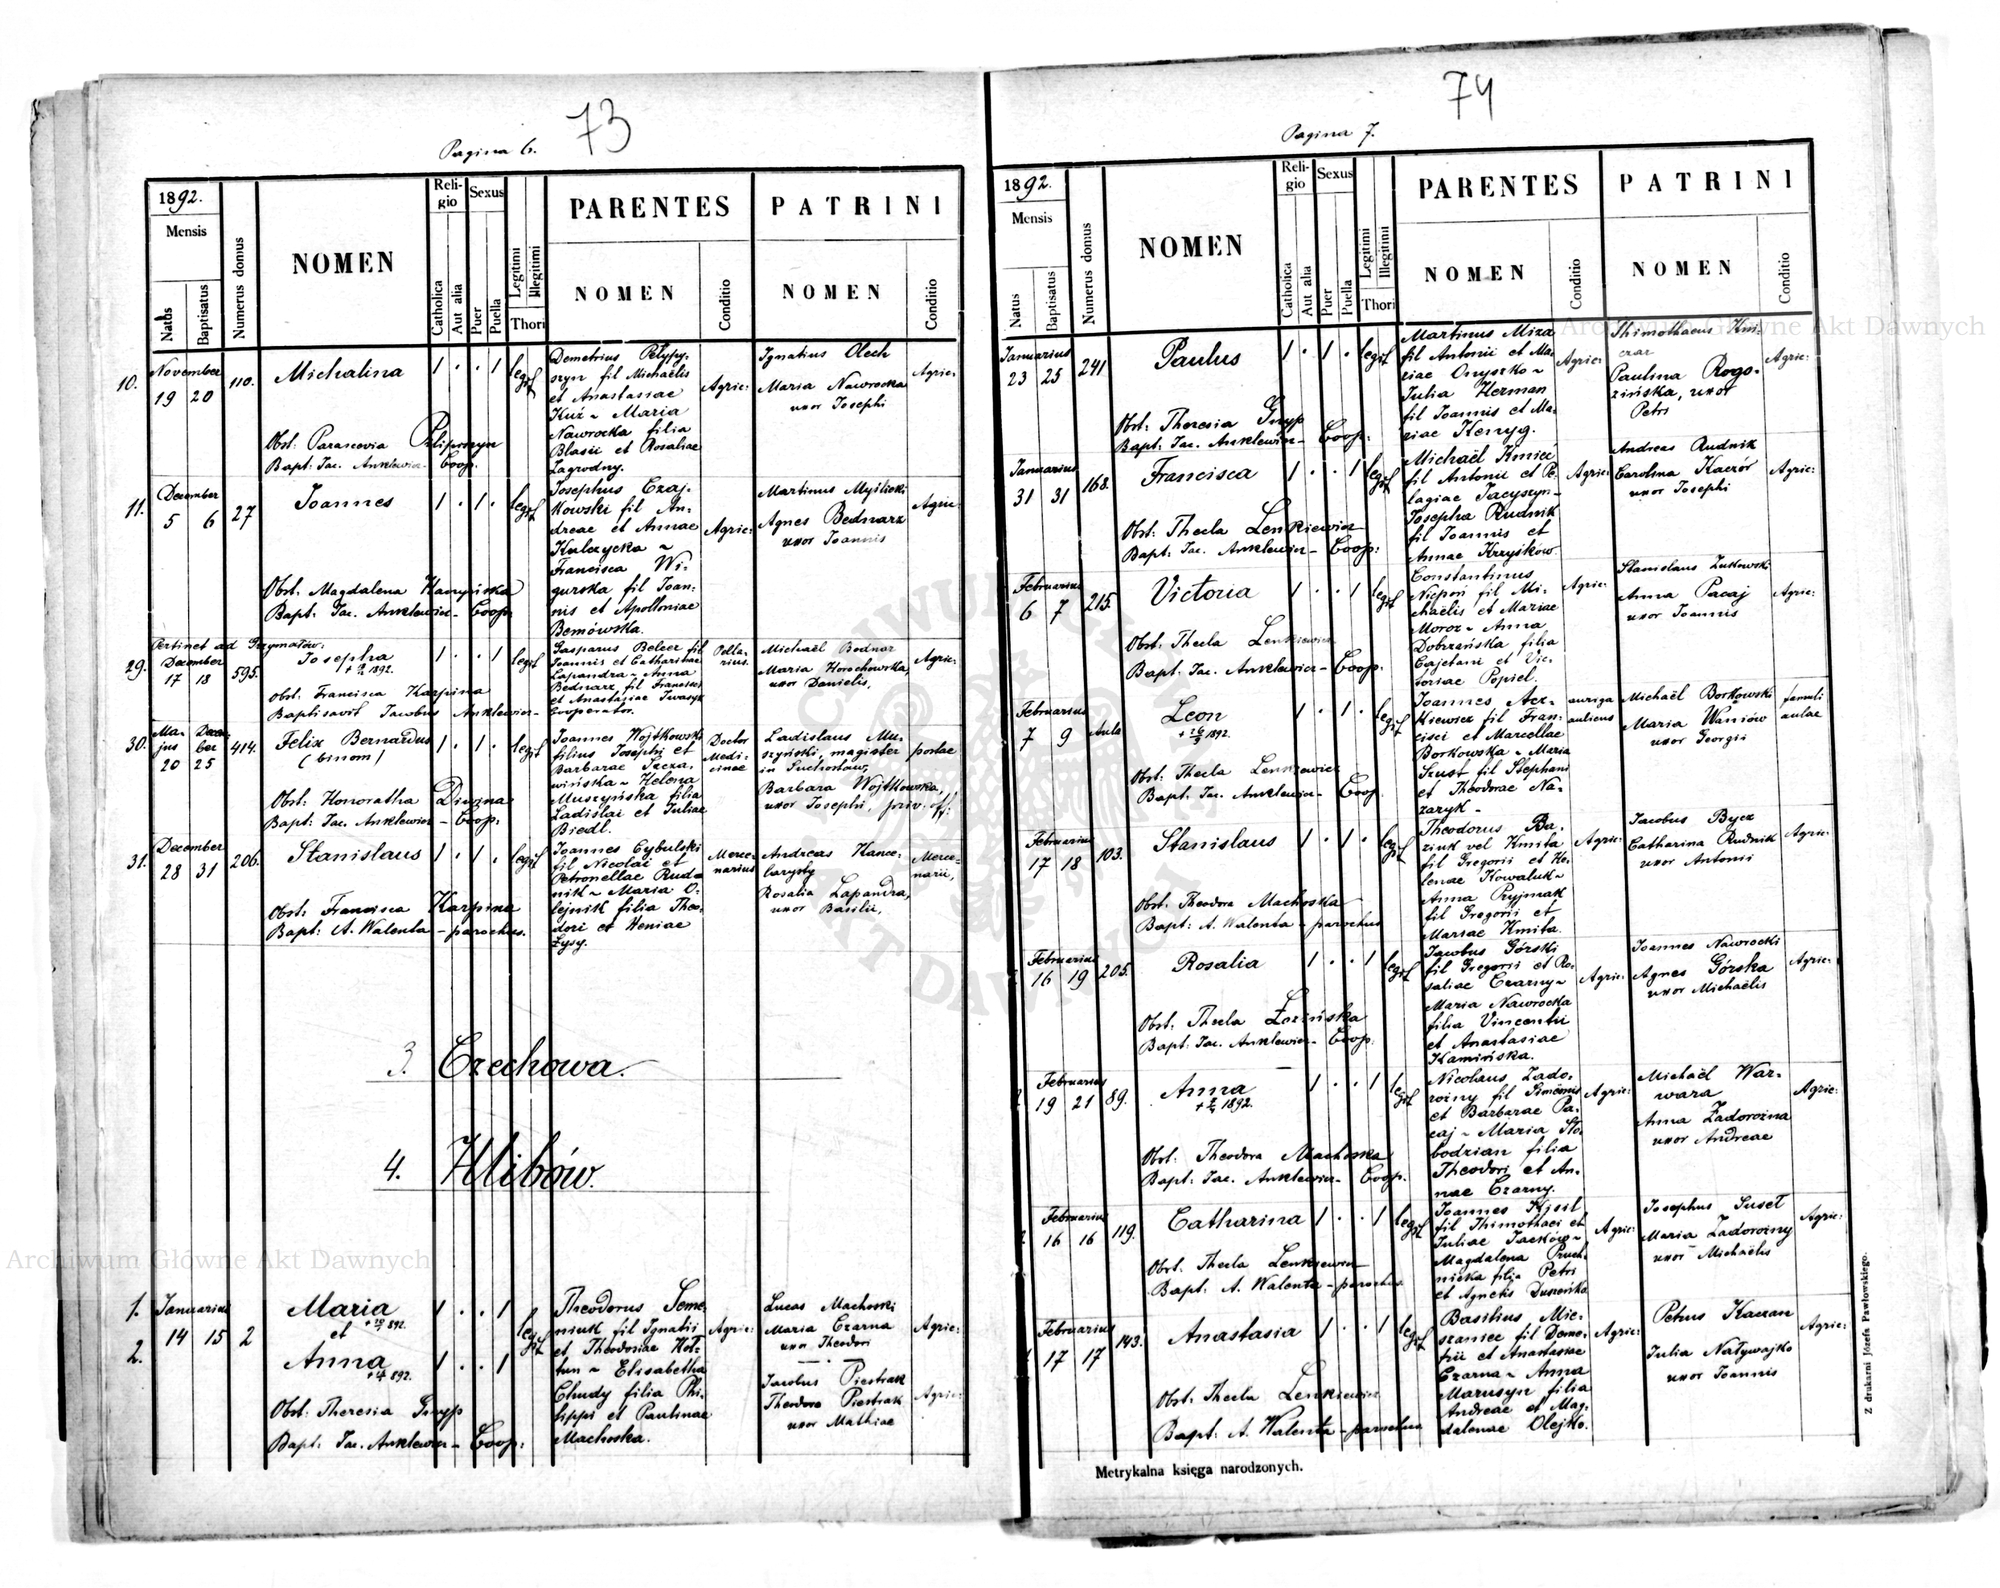 73
Pagina 6.
1892.
Mensis
Natus
Baptisatus
Numerus domus
NOMEN
Religio
Catholica
Aut alia
Sexus
Puer
Puella
Legitimi
Illegitimi
Thori
PARENTES
NOMEN
Conditio
PATRINI
NOMEN
Conditio
10.
November
19 20
110.
Michalina
1 . . 1
legit
Demetrius
fil Michaëlis
et Anastasiae
Kuź ~ Maria
Nawrocka filia
Blasii et Rosaliae
Zagrodny.
Agric:
Ignatius Olech
Maria Nawrocka
uxor Josephi
Agric:
Obst: Parascevia
Bapt: Jac. Anklewicz - Coop.
11.
December
5 6
27
Joannes
1 . 1 .
legit
Josephus Czaj-
kowski fil An-
dreae et Annae
Kulczycka ~
Francisca Wi-
gurska fil Joan-
nis et Apolloniae
Bemówska.
Agric:
Martinus Myślicki
Agnes Bednarz
uxor Joannis
Agric:
Obst. Magdalena
Bapt: Jac. Anklewicz - Coop.
Pertinet ad Grzymałów:
29.
December
17 18
595.
Josepha
1892.
1 . . 1
legit
Gasparus Belcer fil
Joannis et Catharinae
Lapandra ~ Anna
Bednarz fil Francisci
et Anastasiae Iwasyk
Cooperator.
Michaël Bodnar
Maria Horochowska,
uxor Danielis,
Agric:
Obst: Francisca Karpina
Baptisavit Jacobus Anklewicz -
30.
Majus
December
20 25
414.
Felix Bernardus
(binom)
1 . 1 .
legit
Joannes Wojtkowski
filius Josephi et
Barbarae Szcza-
wińska ~ Helena
Muszyńska filia
Ladislai et Juliae
Biedl.
Doctor
Medi-
cinae
Ladislaus Mu-
szyński, magister
in Suchostaw,
Barbara Wojtkowska,
uxor Josephi, priv: off:
postae
Obst: Honoratha
Bapt: Jac. Anklewicz - Coop:
31.
December
28 31
206.
Stanislaus
1 . 1 .
legit
Joannes Cybulski
fil Nicolai et
Petronellae Rud-
nik ~ Maria O-
lejnik filia Theo-
dori et Xeniae
Łysy.
Merce-
narius
Andreas Kance-
larysty
Rosalia Lapandra,
uxor Basilii,
Merce-
narii,
Obst: Francisca Karpina
Bapt: A. Walenta - parochus.
3. Czechowa.
4. Hlibów.
1.
2.
Januarius
14 15
2
Maria
et
Anna
1 . . 1
1 . . 1
legit
Theodorus Seme-
niuk fil Ignatii
et Theodosiae
~ Elisabetha
Chudy filia Phi-
lippi et Paulinae
Machoska.
Agric:
Lucas Machoski
Maria Czarna
uxor Theodori
Jacobus Piestrak
Theodora Piestrak
uxor Mathiae
Agric:
Agric:
Obst: Theresia Gnyp
Bapt: Jac. Anklewicz - Coop:
74
Pagina 7.
1892.
Mensis
Natus
Baptisatus
Numerus domus
NOMEN
Religio
Catholica
Aut alia
Sexus
Puer
Puella
Legitimi
Illegitimi
Thori
PARENTES
NOMEN
Conditio
PATRINI
NOMEN
Conditio
Januarius
23 25
241
Paulus
1 . 1 .
legit
Martinus Miza
fil Antonii et Ma-
riae Onyszko ~
Julia Herman
fil Joannis et Ma-
riae Kenyg.
Agric:
Thimothaeus
Paulina Rogo-
zińska, uxor
Petri
Agric:
Obst: Theresia Gnyp
Bapt: Jac. Anklewicz - Coop:
Januarius
31 31
168.
Francisca
1 . . 1
legit
Michaël Kmieć
fil Antonii et Pe-
lagiae Jacyszyn ~
Josepha Rudnik
fil Joannis et
Annae Krzyśków.
Agric:
Andreas Rudnik
Carolina Kaczór
uxor Josephi
Agric:
Obst: Thecla Lenkiewicz
Bapt: Jac. Anklewicz - Coop:
Februarius
6 7
215.
Victoria
1 . . 1
legit
Constantinus
Niepoń fil Mi-
chaëlis et Mariae
Moroz ~ Anna
Dobrzańska filia
Cajetani et Vic-
toriae Popiel.
Agric:
Stanislaus Żukowski
Anna Pacaj
uxor Joannis
Agric:
Obst: Thecla Lenkiewicz
Bapt: Jac. Anklewicz - Coop:
Februarius
7 9
Aula
Leon
1892.
1 . 1 .
legit
Joannes
fil Fran-
cisci et Marcellae
Borkowska ~ Maria
Szust fil Stephani
et Theodorae Na-
zaryk -
auriga
aulicus
Michaël Borkowski
Maria Waniów
uxor Georgii
famuli
aulae
Obst: Thecla Lenkiewicz
Bapt: Jac. Anklewicz - Coop
Februarius
17 18
103.
Stanislaus
1 . 1 .
legit
Theodorus
vel Kmita
fil Gregorii et He-
lenae Kowaluk ~
Anna Pryjmak
fil Gregorii et
Mariae Kmita.
Agric:
Jacobus Bycz
Catharina Rudnik
uxor Antonii
Agric:
Obst: Theodora Machoska
Bapt: A. Walenta - parochus
Februarius
16 19
205.
Rosalia
1 . . 1
legit
Jacobus Górski
fil Gregorii et Ro-
saliae Czarny ~
Maria Nawrocka
filia Vincentii
et Anastasiae
Kamińska.
Agric:
Joannes Nawrocki
Agnes Górska
uxor Michaëlis
Agric:
Obst. Thecla
Bapt: Jac. Anklewicz - Coop:
Februarius
19 21
89.
Anna
1892.
1 . . 1
legit
Nicolaus Zado-
rożny fil Simeonis
et Barbarae Pa-
caj ~ Maria Sło-
bodzian filia
Theodori et An-
nae Czarny.
Agric:
Michaël War-
wara
Anna Zadorożna
uxor Andreae
Agric:
Obst. Theodora Machoska
Bapt: Jac. Anklewicz - Coop.
Februarius
16 16
119.
Catharina
1 . . 1
legit
Joannes Kisil
fil Thimothaei et
Juliae Jacków ~
Magdalena Pruch-
nicka filia Petri
et Agnetis
Agric:
Josephus Suset
Maria Zadorożny
uxor Michaëlis
Agric:
Obst. Thecla Lenkiewicz
Bapt: A. Walenta - parochus
Februarius
17 17
143.
Anastasia
1 . . 1
legit
Basilius Mie-
szaniec fil Deme-
trii et Anastasiae
Czarna ~ Anna
Marusyn filia
Andreae et Mag-
dalenae Olejko.
Agric:
Petrus Kaczan
Julia Nalywajko
uxor Joannis
Agric:
Obst: Thecla Lenkiewicz
Bapt: A. Walenta - parochus
Metrykalna księga narodzonych.
Z drukarni Józefa Pawłowskiego.
Archiwum Główne Akt Dawnych
Archiwum Główne Akt Dawnych